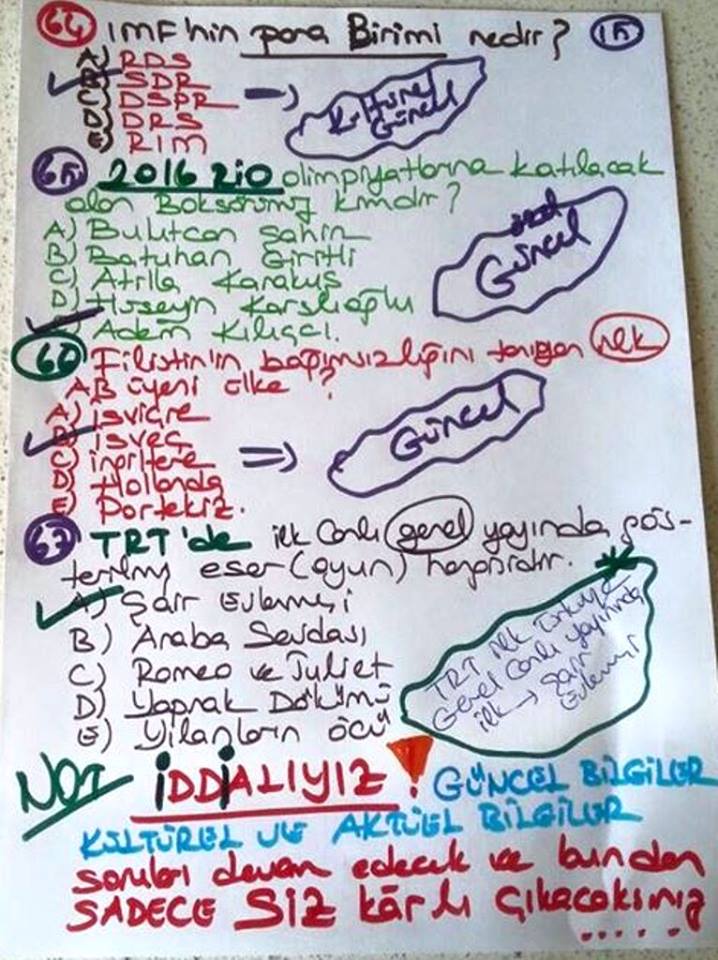 64 IMF'nin para Birimi nedir? 15
A) RDS
B) SDR
C) DSPR
D) DRS
E) RIM
Kültürel Güncel
65 2016 RİO olimpiyatlarına katılacak
olan Boksörümüz kimdir?
A) Bulutcan Şahin
B) Batuhan Giritli
C) Atilla Karakuş
D) Hüseyin Karslıoğlu
Adem Kılıçcı.
Güncel
66 Filistin'in bağımsızlığını tanıyan ilk
AB üyeni ülke?
A) İsviçre
B) İsveç
C) İngiltere
D) Hollanda
E) Portekiz.
Güncel
67 TRT'de ilk canlı genel yayında gös-
terilmiş eser (oyun) hangisidir.
A) Şair Evlenmesi
B) Araba Sevdası
C) Romeo ve Juliet
D) Yaprak Dökümü
E) Yılanların öcü
TRT ilk Türkiye
Genel Canlı yayınında
ilk → Şair
Evlenmesi
NOT İDDİALIYIZ! GÜNCEL BİLGİLER
KÜLTÜREL VE AKTÜEL BİLGİLER
soruları devam edecek ve bundan
SADECE SİZ kârlı çıkacaksınız
.....